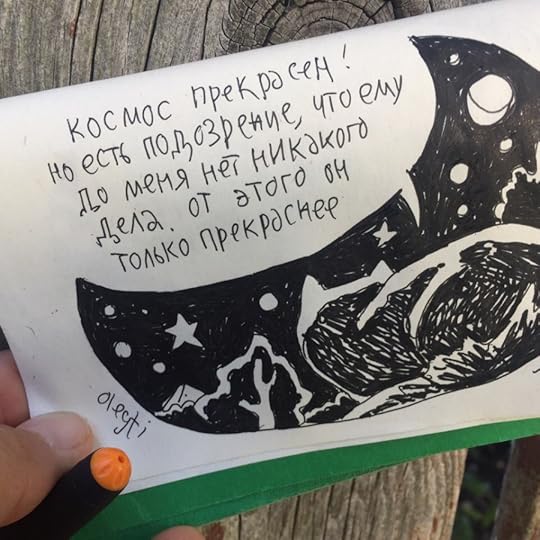 космос прекрасен!
но есть подозрение, что ему
до меня нет никакого
дела. от этого он
только прекраснее